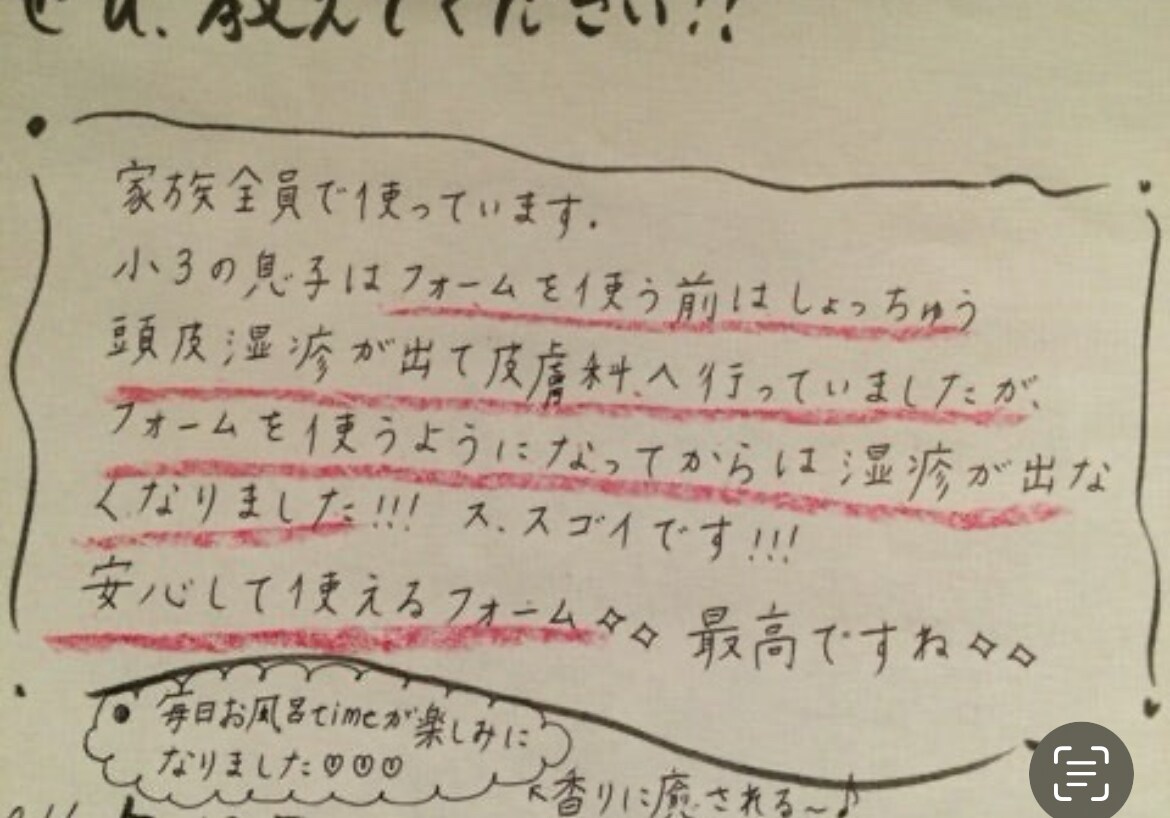 ぜひ、教えてください!!
家族全員で使っています.
小3の息子はフォームを使う前はしょっちゅう
頭皮湿疹が出て皮膚科へ行っていましたが、
フォームを使うようになってからは湿疹が出な
くなりました!!! ス、スゴイです!!!
安心して使えるフォーム✧✧ 最高ですね✧✧
毎日お風呂timeが楽しみに
なりました♡♡♡
↖香りに癒される~♪